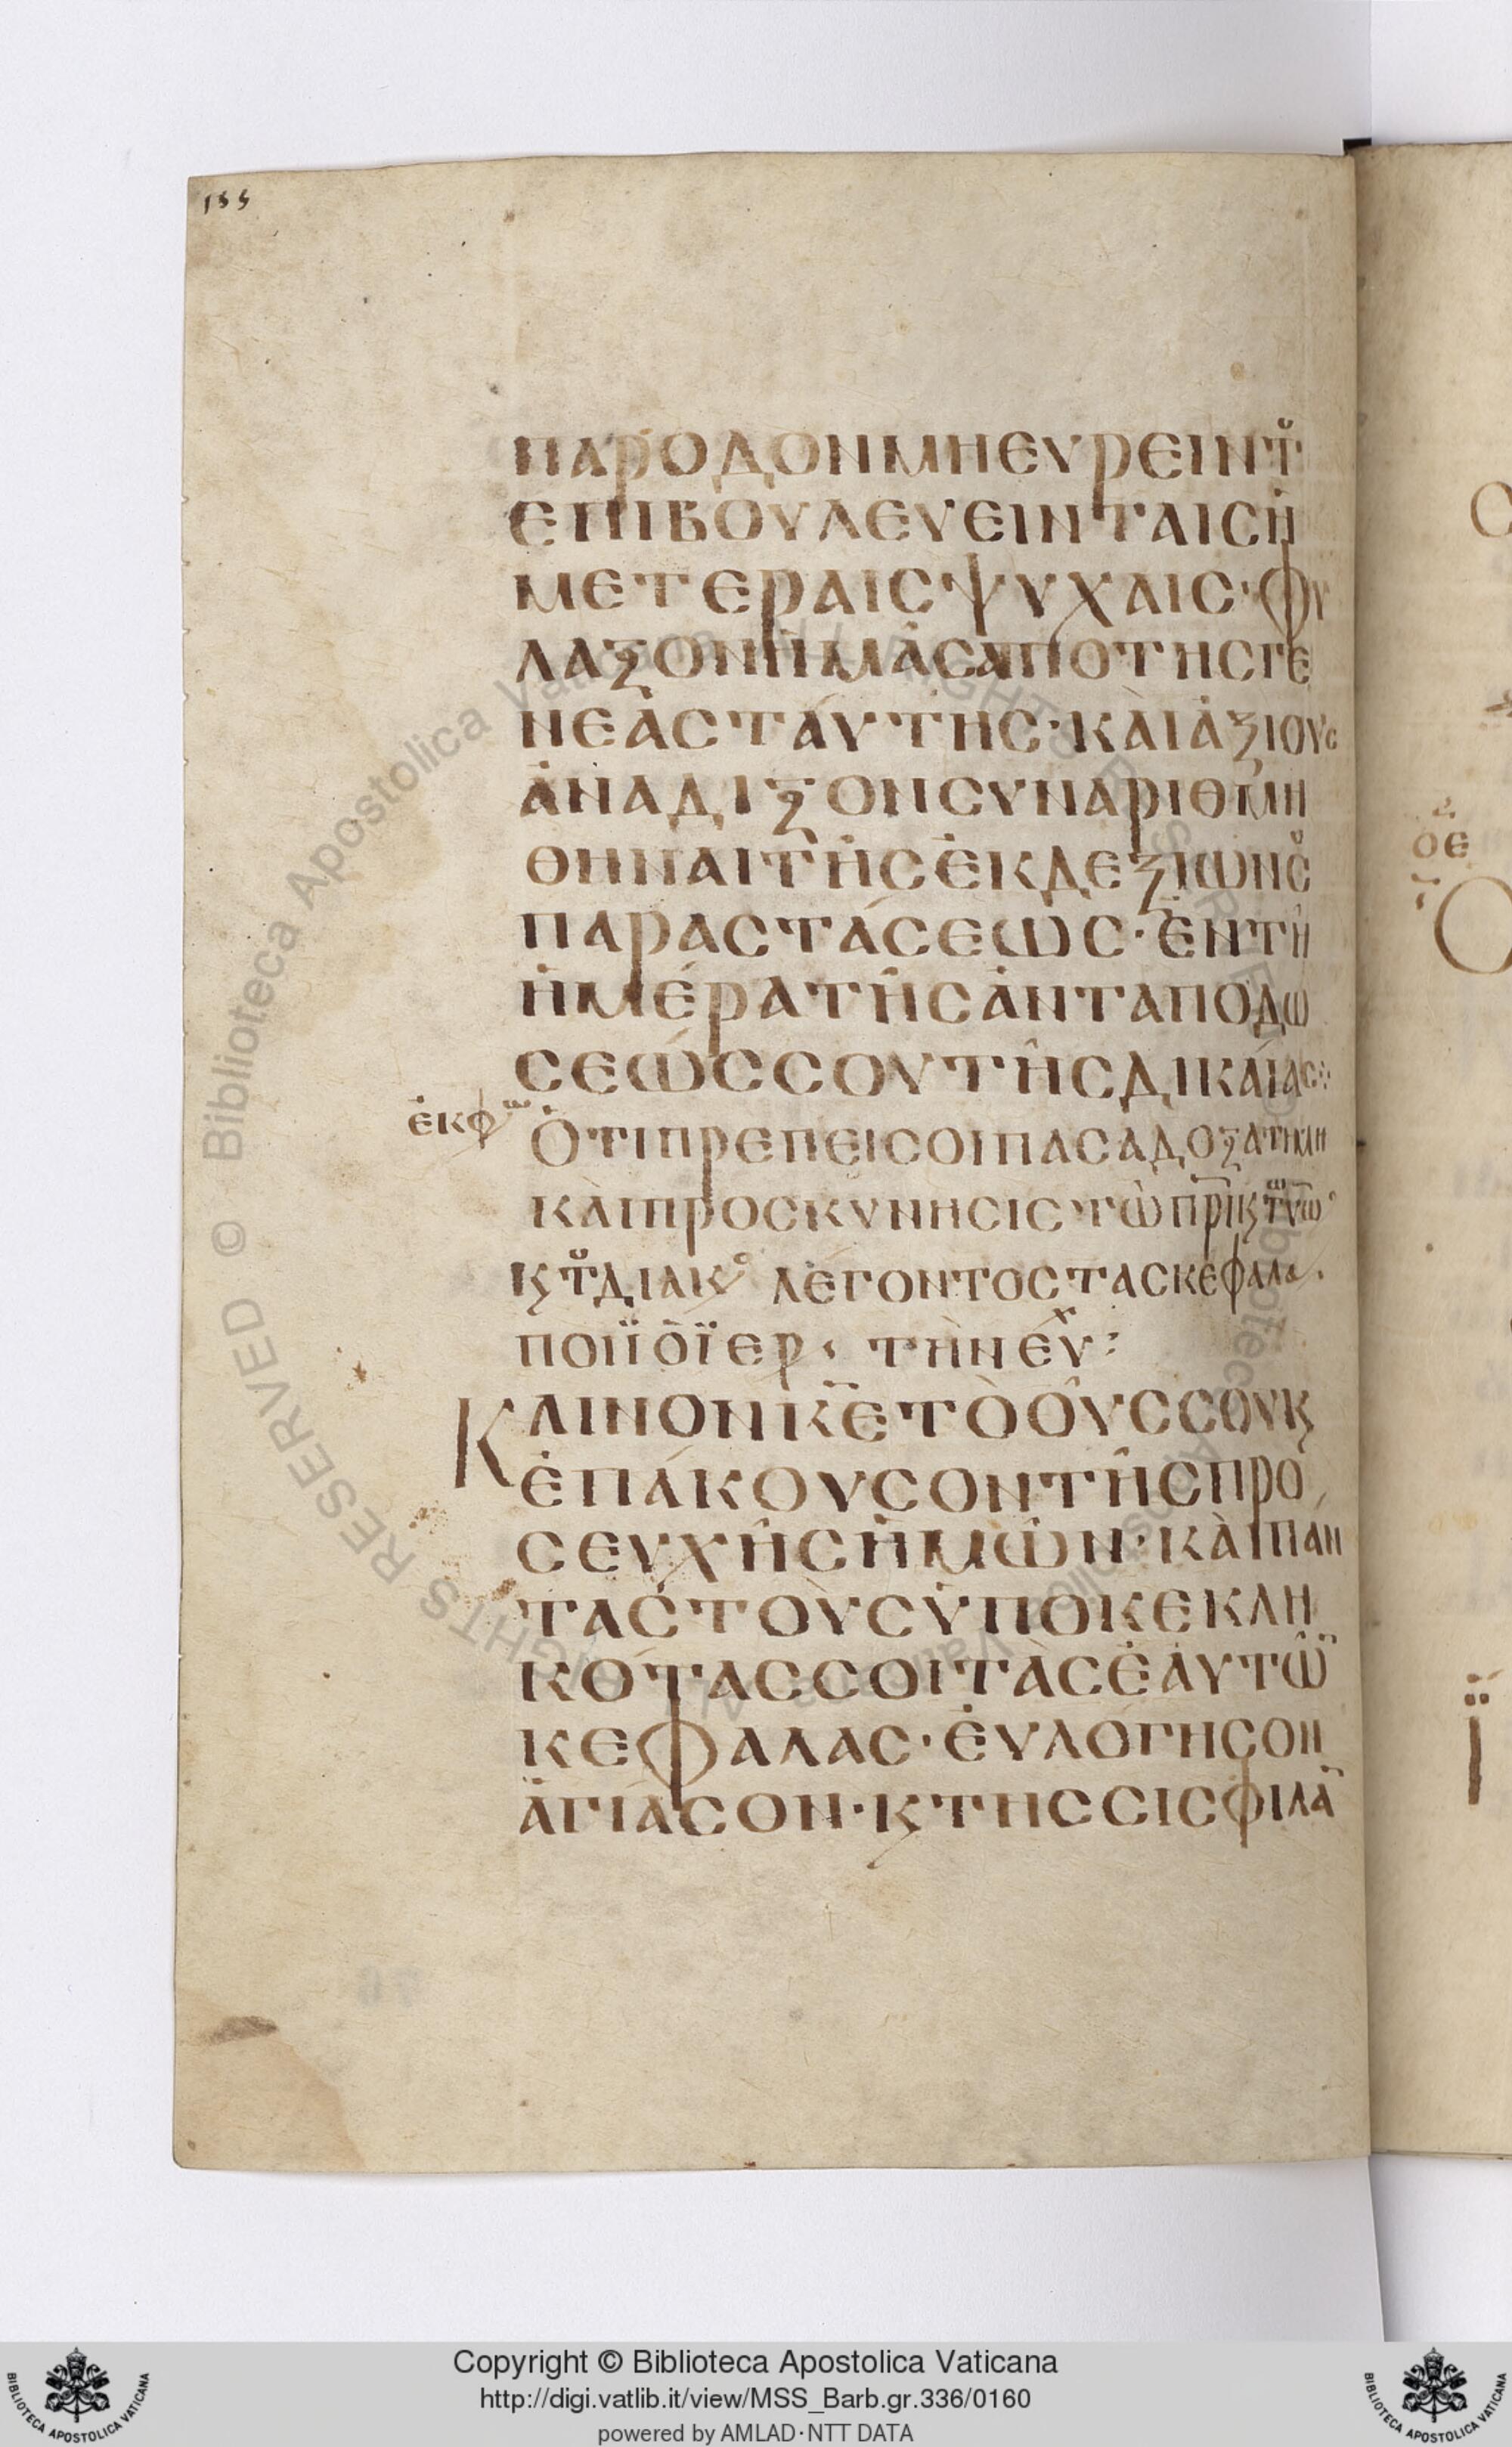 155
ΠΑΡΟΔΟΝΜΗΕΥΡΕΙΝΤ̊
ΕΠΙΒΟΥΛΕΥΕΙΝΤΑΙΣΗ
ΜΕΤΕΡΑΙΣΨΥΧΑΙΣ·ΦΥ
ΛΑΞΟΝΗΜΑΣΑΠΟΤΗΣΓΕ
ΝΕΑΣΤΑΥΤΗΣ·ΚΑΙΑΞΙΟΥΣ
ΑΝΑΔΙΞΟΝΣΥΝΑΡΙΘΜΗ
ΘΗΝΑΙΤΗΣΕΚΔΕΞΙΩΝΣ̊
ΠΑΡΑΣΤΑΣΕΩΣ·ΕΝΤΗ
ΗΜΕΡΑΤΗΣΑΝΤΑΠΟΔΩ
ΣΕΩΣΣΟΥΤΗΣΔΙΚΑΙΑΣ:
ἐκφω
ΟΤΙΠΡΕΠΕΙΣΟΙΠΑΣΑΔΟΞΑΤΙΜΗ
ΚΑΙΠΡΟΣΚΥΝΗΣΙΣΤΩΠΡΙΚϛΤΩΥΩ
ΚϛΤ̊ΔΙΑΚΟ ΛΕΓΟΝΤΟΣΤΑΣΚΕΦΑΛΑ.
ΠΟΙΪΟΪΕΡ, ΤΗΝΕΥΧ:
ΚΛΙΝΟΝΚΕΤΟΟΥΣΣΟΥΚϛ
ΕΠΑΚΟΥΣΟΝΤΗΣΠΡΟ
ΣΕΥΧΗΣΗΜΩΝ·ΚΑΙΠΑΝ
ΤΑΣΤΟΥΣΥΠΟΚΕΚΛΗ
ΚΟΤΑΣΣΟΙΤΑΣΕΑΥΤΩ
ΚΕΦΑΛΑΣ·ΕΥΛΟΓΗΣΟΝ
ΑΓΙΑΣΟΝ·ΚϛΤΗΣΣΙΣΦΙΛΑ
© Biblioteca Apostolica Vaticana ALL RIGHTS RESERVED
Copyright © Biblioteca Apostolica Vaticana
http://digi.vatlib.it/view/MSS_Barb.gr.336/0160
powered by AMLAD·NTT DATA
BIBLIOTECA APOSTOLICA VATICANA
BIBLIOTECA APOSTOLICA VATICANA